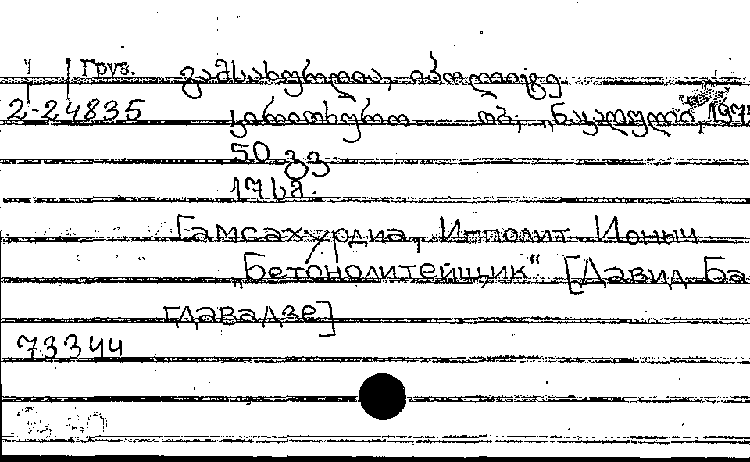 Груз.
გამსახურდია, იპოლიტე
2-24835
თბ., „ნაკადული, 197
50 გვ
17 სმ.
Гамсахурдиа, Ипполит Ионыч
„Бетонолитейщик“ [Давид Ба
главадзе]
73344